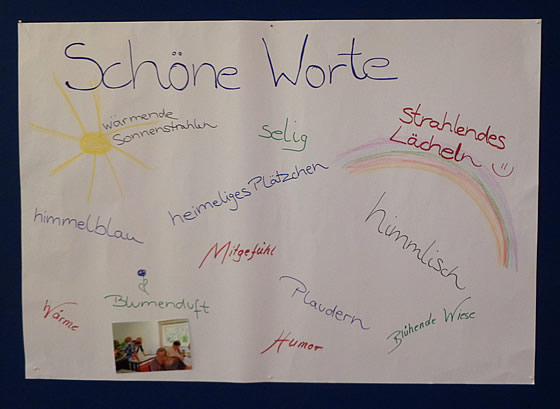 Schöne Worte
wärmende
Sonnenstrahlen
selig
strahlendes
Lächeln
himmelblau
heimeliges Plätzchen
himmlisch
Mitgefühl
Blumenduft
Plaudern
Wärme
Humor
Blühende Wiese